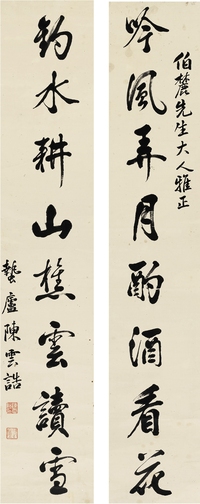 伯麓先生大人雅正
吟風弄月酌酒看花
釣水耕山樵雲讀雪
蟄廬陳雲誥